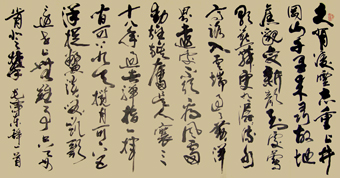 久有凌云志重上井
冈山千里来寻故地
旧貌变新颜到处莺
歌燕舞更有潺潺流水
高路入云端过了黄洋
界险处不须看风雷
动旌旗奋是人寰三
十八年过去弹指一挥
间可上九天揽月可下五
洋捉鳖谈笑凯歌
还世上无难事只要
肯登攀 毛泽东词一首